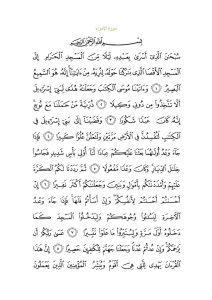 سورة الإسراء
بِسْمِ اللَّهِ الرَّحْمَٰنِ الرَّحِيمِ
سُبْحَٰنَ الَّذِي أَسْرَىٰ بِعَبْدِهِ لَيْلًا مِّنَ الْمَسْجِدِ الْحَرَامِ إِلَى
الْمَسْجِدِ الْأَقْصَا الَّذِي بَٰرَكْنَا حَوْلَهُ لِنُرِيَهُ مِنْ ءَايَٰتِنَا إِنَّهُ هُوَ السَّمِيعُ
الْبَصِيرُ ١ وَءَاتَيْنَا مُوسَى الْكِتَٰبَ وَجَعَلْنَٰهُ هُدًى لِّبَنِي إِسْرَٰءِيلَ
أَلَّا تَتَّخِذُوا مِن دُونِي وَكِيلًا ٢ ذُرِّيَّةَ مَنْ حَمَلْنَا مَعَ نُوحٍ
إِنَّهُ كَانَ عَبْدًا شَكُورًا ٣ وَقَضَيْنَا إِلَىٰ بَنِي إِسْرَٰءِيلَ فِي
الْكِتَٰبِ لَتُفْسِدُنَّ فِي الْأَرْضِ مَرَّتَيْنِ وَلَتَعْلُنَّ عُلُوًّا كَبِيرًا ٤ فَإِذَا
جَاءَ وَعْدُ أُولَىٰهُمَا بَعَثْنَا عَلَيْكُمْ عِبَادًا لَّنَا أُولِي بَأْسٍ شَدِيدٍ فَجَاسُوا
خِلَٰلَ الدِّيَارِ وَكَانَ وَعْدًا مَّفْعُولًا ٥ ثُمَّ رَدَدْنَا لَكُمُ الْكَرَّةَ
عَلَيْهِمْ وَأَمْدَدْنَٰكُم بِأَمْوَٰلٍ وَبَنِينَ وَجَعَلْنَٰكُمْ أَكْثَرَ نَفِيرًا ٦ إِنْ
أَحْسَنتُمْ أَحْسَنتُمْ لِأَنفُسِكُمْ وَإِنْ أَسَأْتُمْ فَلَهَا فَإِذَا جَاءَ وَعْدُ
الْءَاخِرَةِ لِيَسُءُوا وُجُوهَكُمْ وَلِيَدْخُلُوا الْمَسْجِدَ كَمَا
دَخَلُوهُ أَوَّلَ مَرَّةٍ وَلِيُتَبِّرُوا مَا عَلَوْا تَتْبِيرًا ٧ عَسَىٰ رَبُّكُمْ أَن
يَرْحَمَكُمْ وَإِنْ عُدتُّمْ عُدْنَا وَجَعَلْنَا جَهَنَّمَ لِلْكَٰفِرِينَ حَصِيرًا ٨ إِنَّ هَٰذَا
الْقُرْءَانَ يَهْدِي لِلَّتِي هِيَ أَقْوَمُ وَيُبَشِّرُ الْمُؤْمِنِينَ الَّذِينَ يَعْمَلُونَ